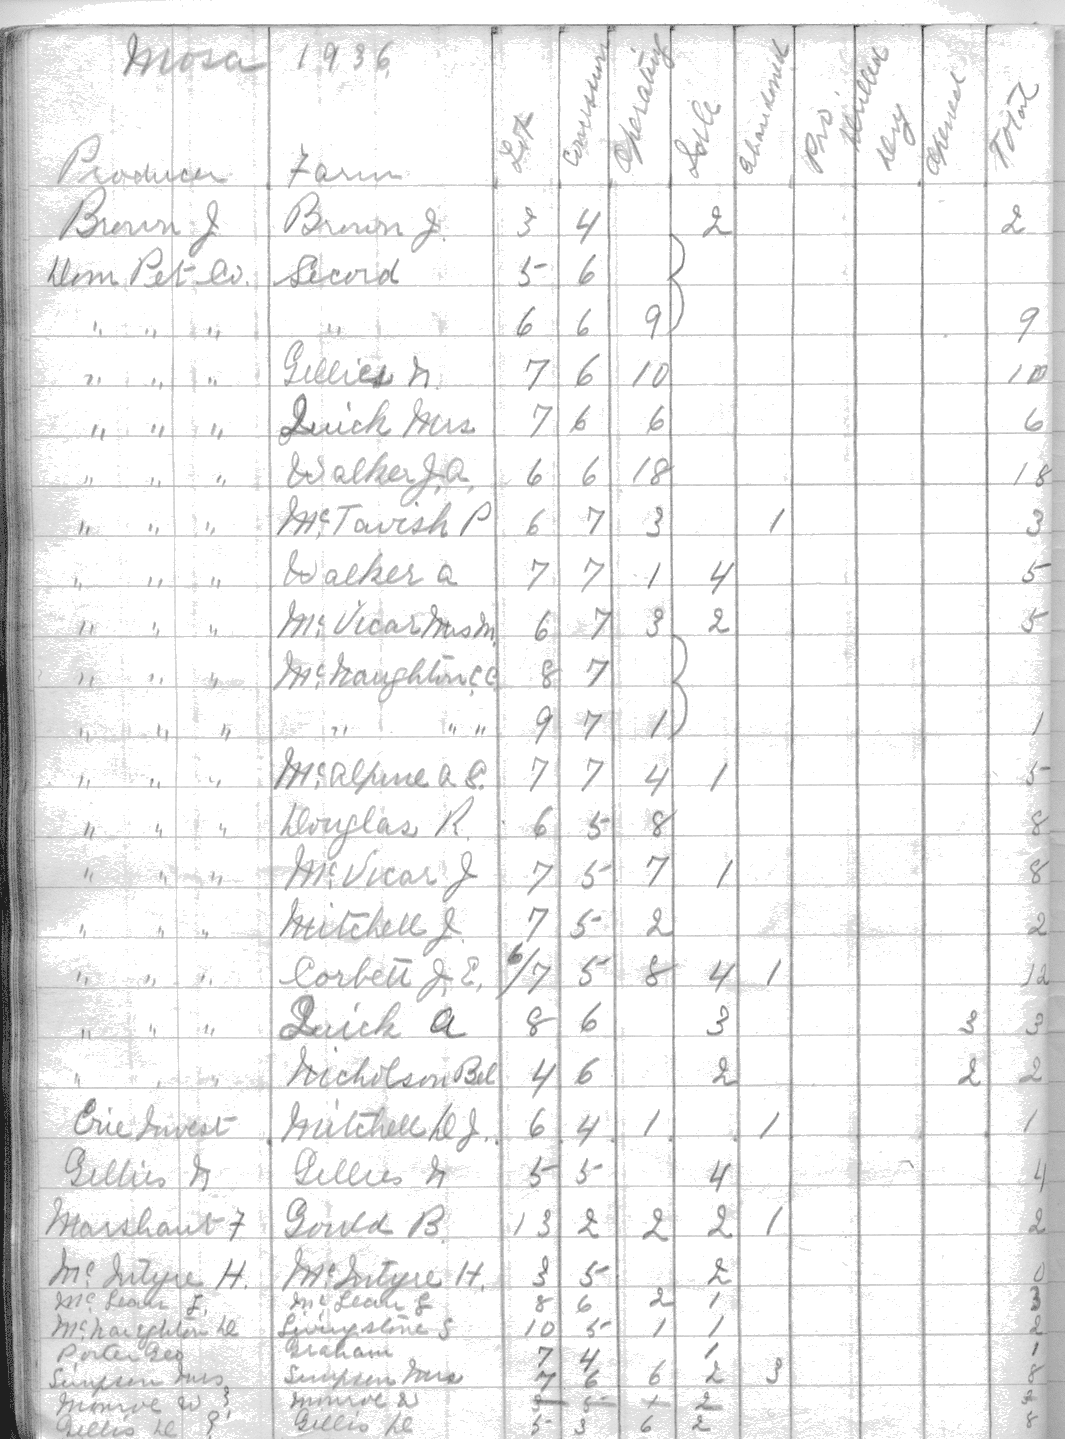 Mosa 1936
Producer Farm Lot Concession Operating Idle Abandoned Pro. Drilled Dry Opened Total
Brown J. Brown J. 3 4 2 2
Dom Pet Co. Secord 5 6
" " " " 6 6 9 9
" " " Gillies N. 7 6 10 10
" " " Quick Mrs 7 6 6 6
" " " Walker J.A. 6 6 18 18
" " " McTavish P 6 7 3 1 3
" " " Walker A 7 7 1 4 5
" " " McVicar Mrs M. 6 7 3 2 5
" " " McNaughton C.C. 8 7
" " " " " " 9 7 1 1
" " " McAlpine A C. 7 7 4 1 5
" " " Douglas R. 6 5 8 8
" " " McVicar J 7 5 7 1 8
" " " Mitchell J. 7 5 2 2
" " " Corbett J. E. 6/7 5 8 4 1 12
" " " Quick A 8 6 3 3 3
" " " Nicholson 4 6 2 2 2
Erie Invest Mitchell D J. 6 4 1 1 1
Gillies N Gillies N 5 5 4 4
Marshant F Gould B. 13 2 2 2 1 2
McIntyre H. McIntyre H. 3 5 2 0
McLean McLean 8 6 2 1 3
McNaughton D Livingstone S 10 5 1 1 2
Porter Geo Graham 7 4 1 1
Simpson Mrs Simpson Mrs 7 6 6 2 3 8
Monroe W Monroe W 5 1 2
Gillis D Gillis D 5 3 6 2 8